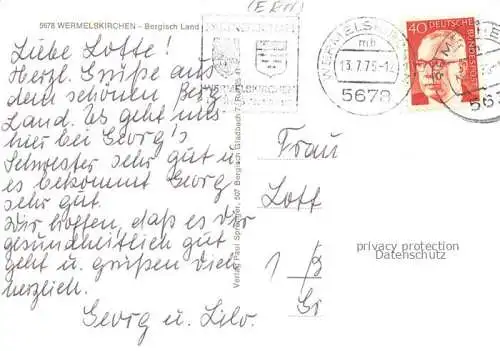 (ERN)
5678 WERMELSKIRCHEN – Bergisch Land
Liebe Lotte!
Herzl. Grüße aus
dem schönen Berg.
Land. Es geht uns
hier bei Georg's
Schwester sehr gut u.
es bekommt Georg
sehr gut.
Wir hoffen, daß es Dir
gesundheitlich gut
geht u. grüßen Dich
herzlich.
Georg u. Lilo.
Verlag Paul 507 Bergisch Gladbach
WERMELSKIRCHEN
WERMELSKIRCHEN
mb
13.7.75-12
5678
40
DEUTSCHE BUNDESPOST
Frau
Lott
1 B
privacy protection
Datenschutz